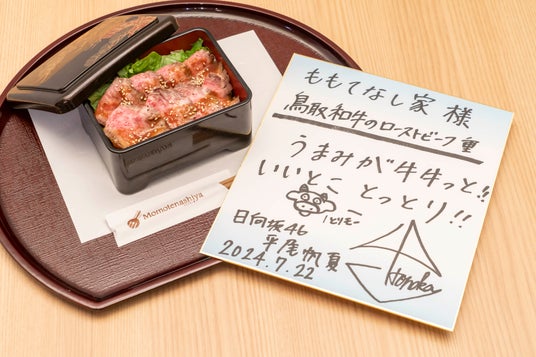 ももてなし家 様
鳥取和牛のローストビーフ重
うまみが牛牛っと!!
いいとこ とっとり!!
トリモー
日向坂46
平尾帆夏
2024.7.22
Honoka
Momotenashiya